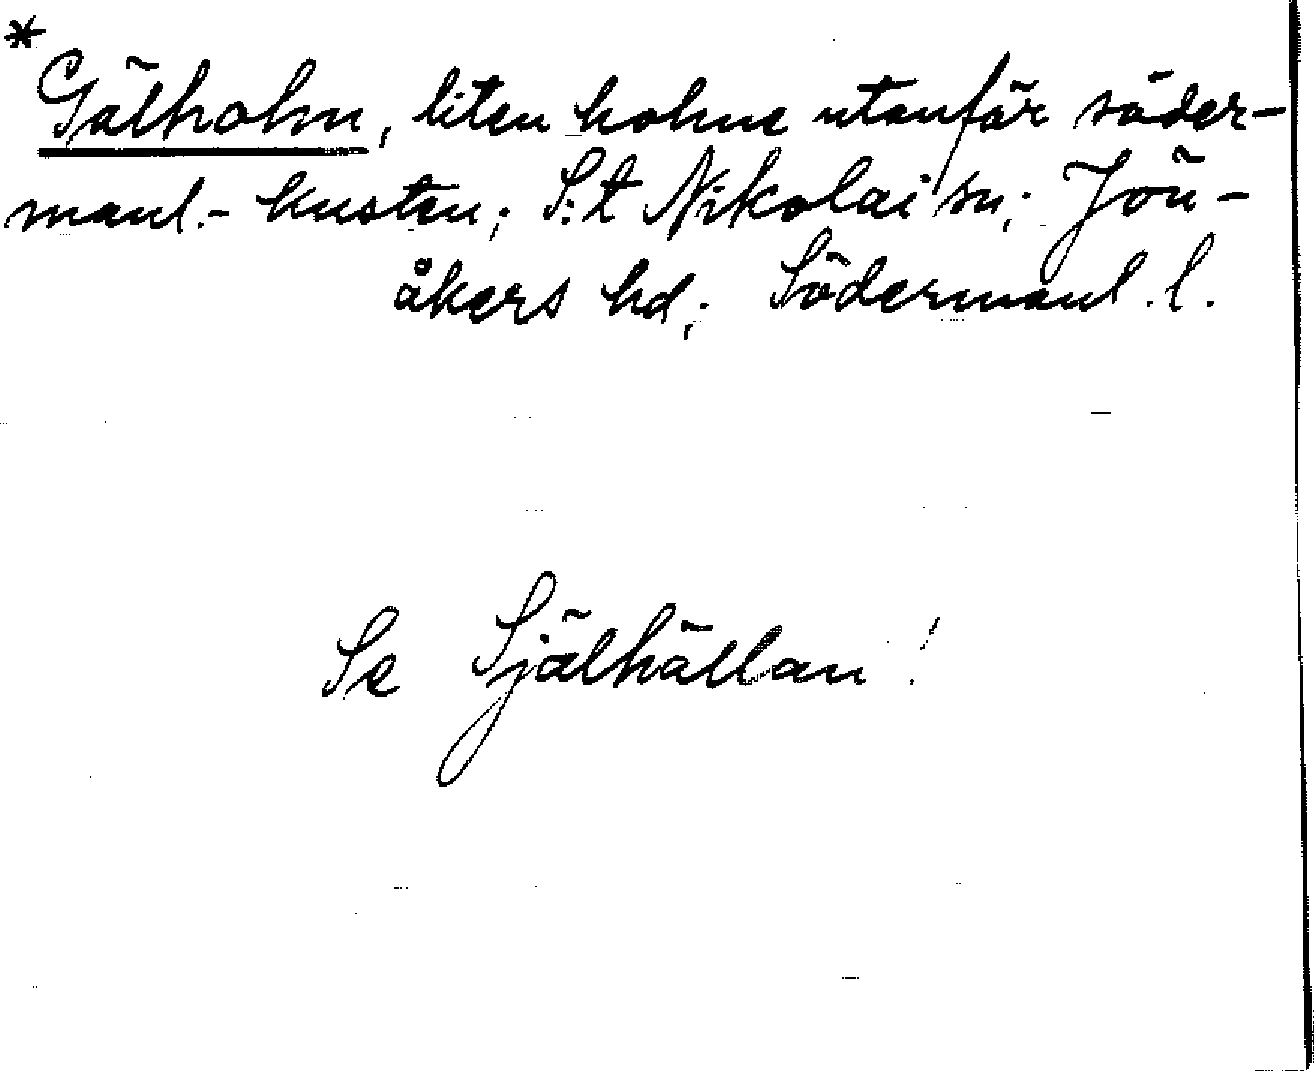 *
Gälholm, liten holme utanför söder-
manl.- kusten; S:t Nikolai sn; Jön-
åkers hd; Södermanl. l.
Se Själhällan!